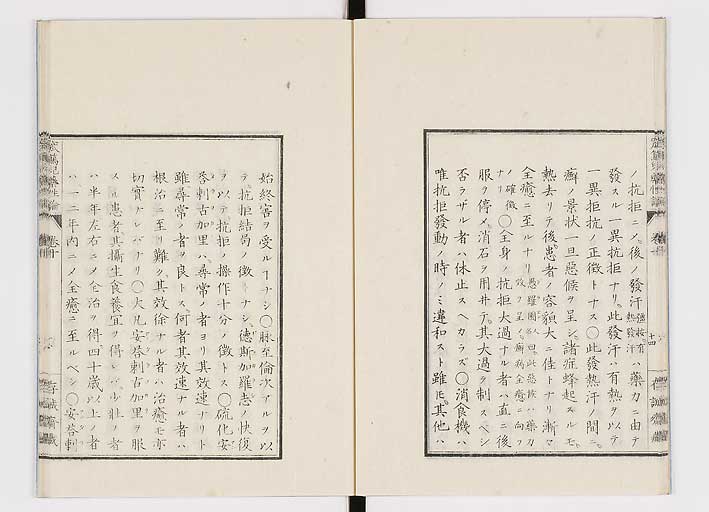 ノ抗拒ニメ。後ノ發汗 強救有熱發汗 ハ藥力ニ由テ
發スル一異抗拒ナリ。此發汗ハ有熱ヲ以テ
一異抗抗ノ正徴トナス〇此發熱汗ノ間ニ。
癬ノ景状一旦惡候ヲ呈シ。諸症蜂起スルモ。
熱去リテ後患者ノ容貌大ニ佳トナリ漸々
全癒ニ至ルナリ 愚羅團人曰。此惡候ハ藥力各効ヲ呈ノ。癬病全癒ニ向フ
ノ確徴ナリ 〇全身ノ抗拒大過ナル者ハ直ニ後
服ヲ停メ。消石ヲ用井テ。其大過ヲ制スベシ
否ラザル者ハ休止スベカラズ〇消食機ハ
唯抗拒發動ノ時ノミ違和スト雖モ。其他ハ
始終害ヲ受ルヿナシ〇脉至倫次アルヲ以
テ。抗拒結局ノ徴トナシ。德斯加羅志ノ快復
ヲ以テ。抗拒ノ操作十分ノ徴トス〇硫化安
蒼刺古加里ハ。尋常ノ者ヨリ其效速ナリト
雖尋常ノ者ヲ良トス。何者其效速ナル者ハ
根治ニ至リ難ク。其效徐ナル者ハ治癒モ亦
切實ナレバナリ〇大凡安蒼刺古加里ヲ服
スル患者。其攝生食養宜ヲ得レバ。少壮ノ者
ハ半年左右ニメ全治ヲ得。四十歳以上ノ者
ハ一二年内ニメ全癒ニ至ルベシ〇安蒼刺